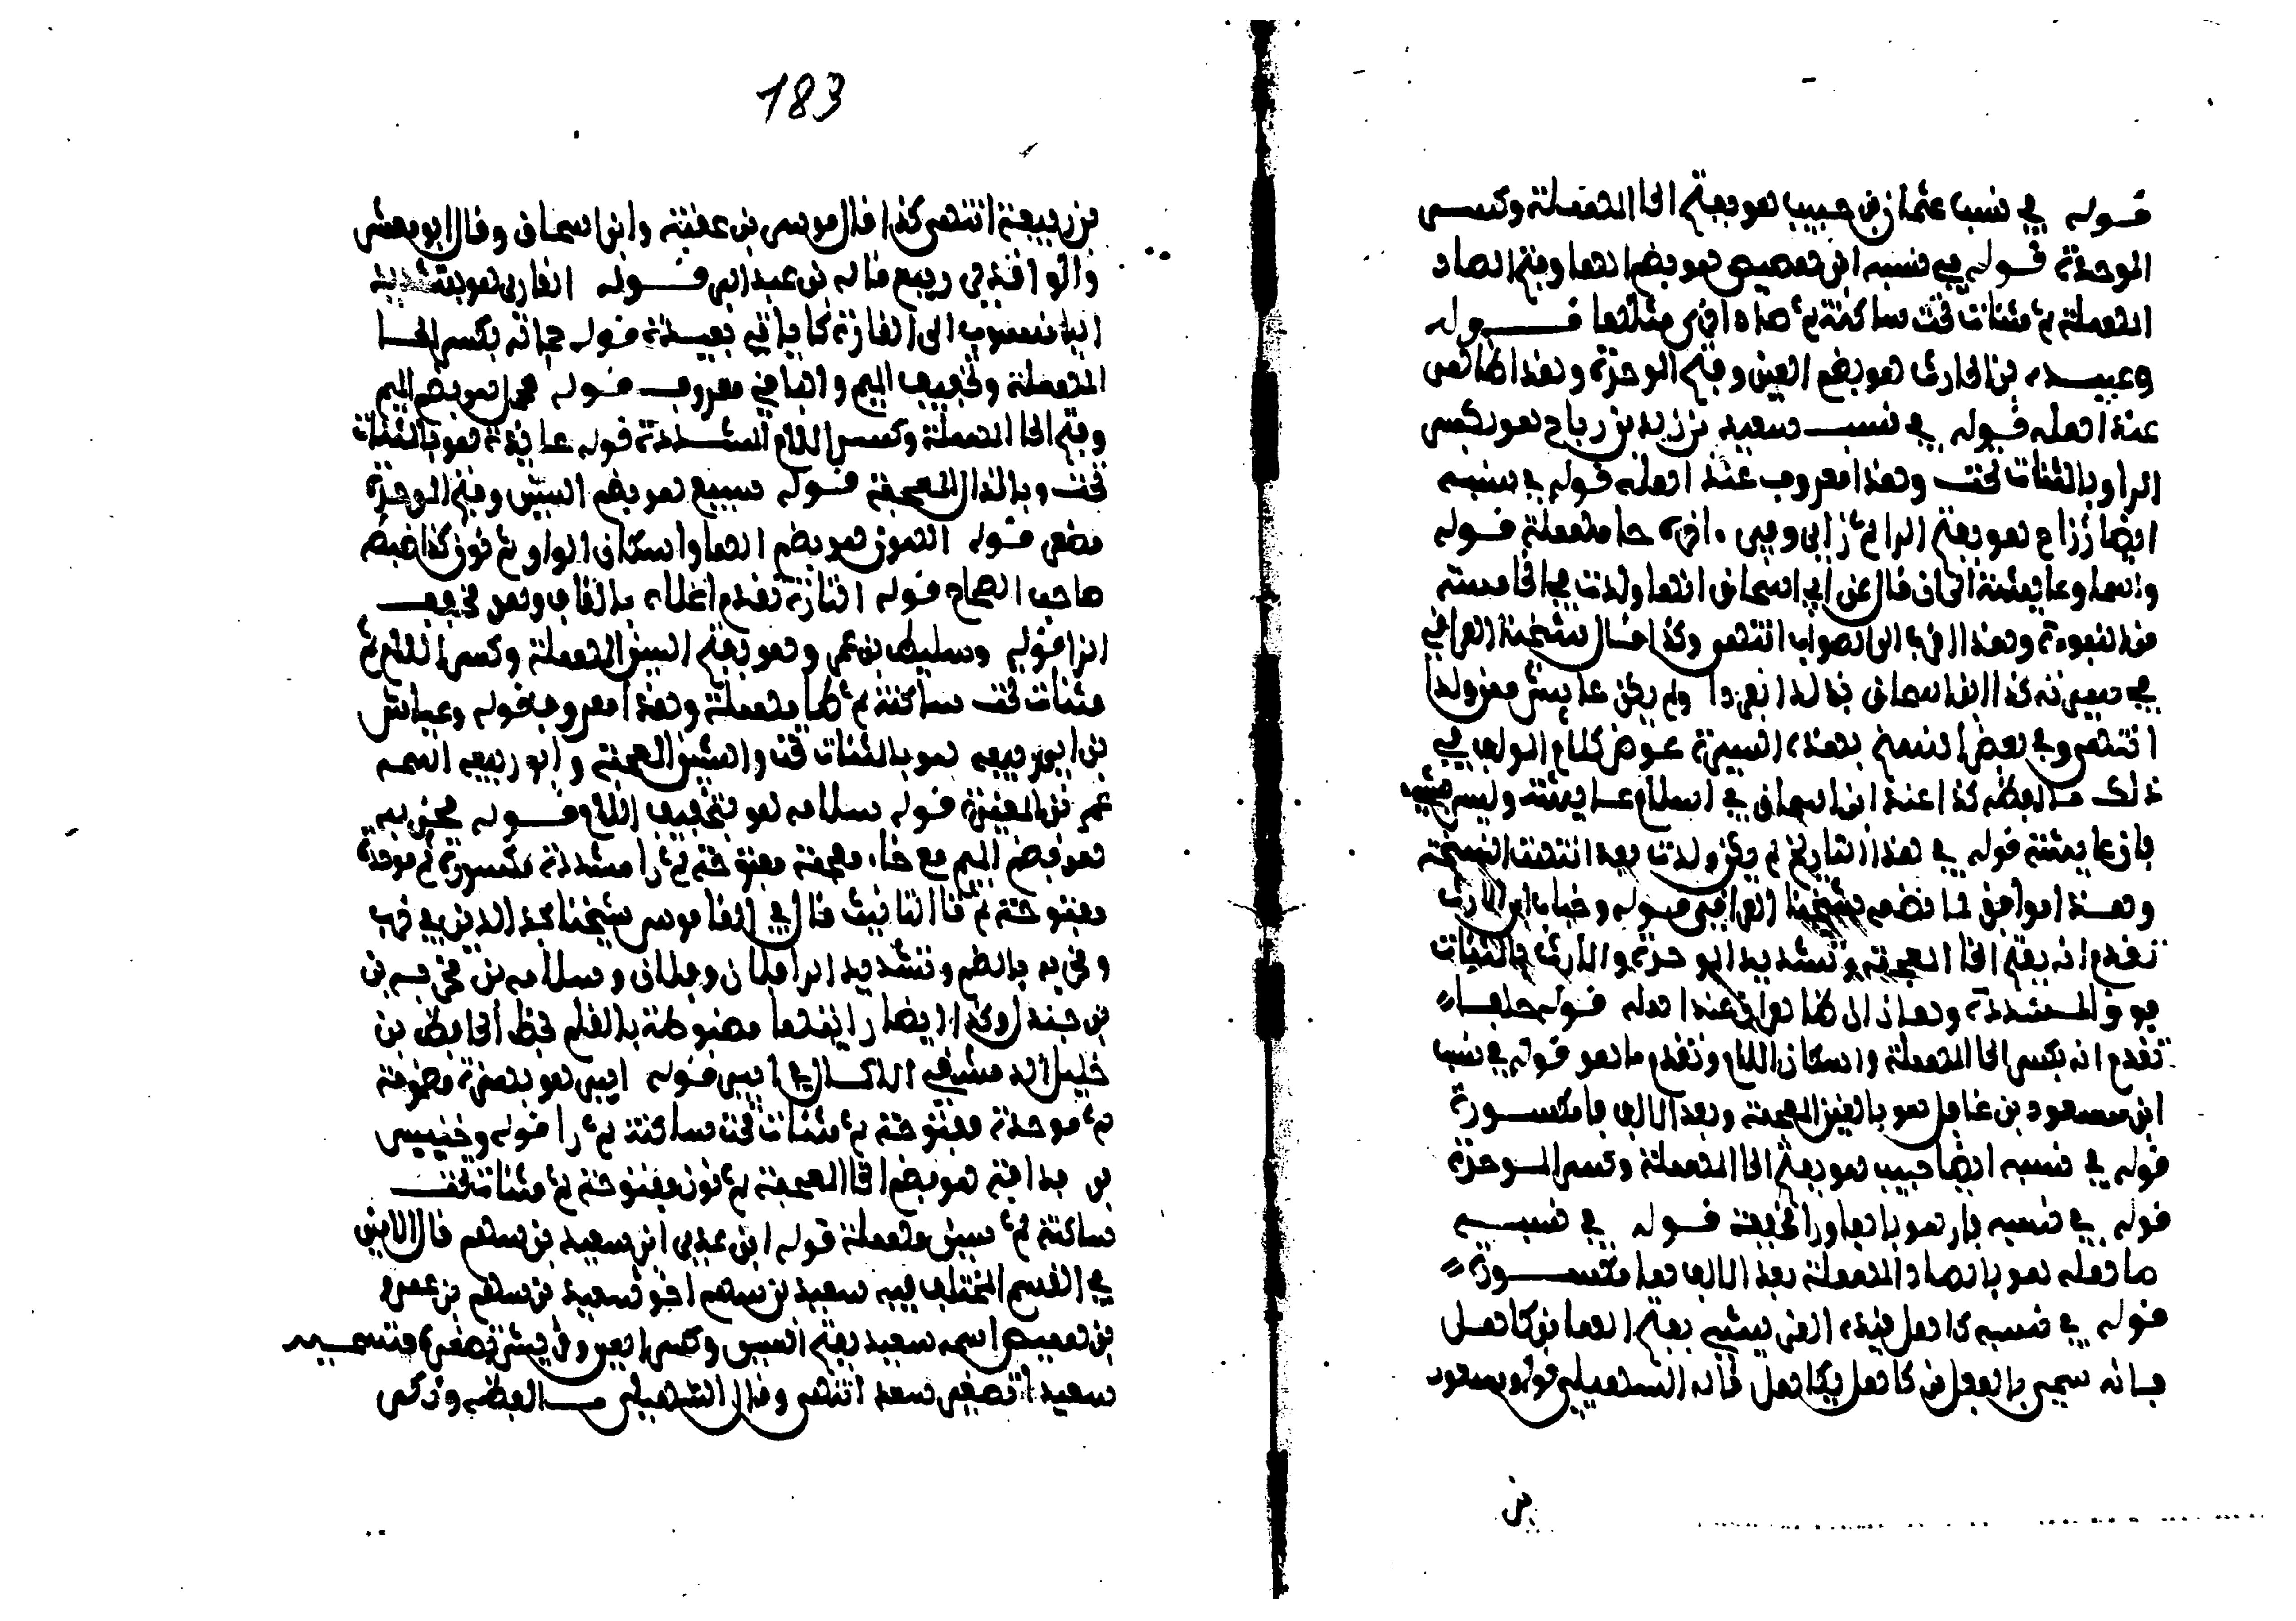 قوله في نسب عثمان بن حبيب هو بفتح الحا المهملة وكسر
الموحدة قوله في نسبه ابن هصيص هو بضم الها وفتح الصاد
المهملة ثم مثناة تحت ساكنة ثم صاد اخرى مثلها قوله
وعبيدة بن الحارث هو بضم العين وفتح الموحدة وهذا ظاهر
عند اهله قوله في نسب سعيد بن زيد بن رياح هو بكسر
الرا وبالمثناة تحت وهذا معروف عند اهله قوله في نسبه
ايضا رزاح هو بفتح الرا ثم زاي وفي اخره حا مهملة قوله
واسما وعايشة الخ قال عن ابن اسحاق انها ولدت في الخامسة
من النبوءة وهذا الصواب انتهى وكذا قال شيخنا العراقي
في سيرته كذا ابن اسحاق بذلك انفردا ولم يكن عايش ممن ولدا
انتهى وفي بعض النسخ بهذه السيرة عوض كلام المولف في
ذلك ما لفظه كذا عند ابن اسحاق في اسلام عايشة وليس
بان عايشة قوله في هذا التاريخ لم يكن ولدت بعد انتهت النسخة
وهذا موافق لما نظمه شيخنا العراقي قوله وخباب ابن الارت
تقدم انه بفتح الخا المعجمة وتشديد الموحدة والارت بالمثناة
فوق المشددة وهذان ظاهران عند اهله قوله حلفا
تقدم انه بكسر الحا المهملة واسكان اللام وتقدم ما هو قوله في نسب
ابن مسعود بن غافل هو بالغين المعجمة وبعد الالف فا مكسورة
قوله في نسبه ايضا حبيب هو بفتح الحا المهملة وكسر الموحدة
قوله في نسبه فار هو بالفا والرا الخفيفة قوله في نسبه
صاهلة هو بالصاد المهملة بعد الالف ها مكسورة
قوله في نسبه كاهل قيده الخشني بفتح الها من كاهل
فانه سمي بالفعل من كاهل يكاهل قاله السهيلي قوله ومسعود
بن
183
بن ربيعة انتهى كذا قال موسى بن عقبة وابن اسحاق وقال ابو معشر
والواقدي ربيع قاله ابن عبد البر قوله القاري هو بتشديد
اليا منسوب الى القارة كما ياتي بعيده قوله حماته بكسر الحا
المهملة وتخفيف الميم والباقي معروف قوله محلم هو بضم الميم
وفتح الحا المهملة وكسر اللام المشددة قوله عايذة هو بالمثناة
تحت وبالذال المعجمة قوله سبيع هو بضم السين وفتح الموحدة
مصغر قوله الهون هو بضم الها واسكان الواو ثم نون كذا ضبطه
صاحب الصحاح قوله القارة تقدم اعلاه بالقاف وهو تخفيف
الرا قوله وسليط بن عمرو هو بفتح السين المهملة وكسر اللام ثم
مثناة تحت ساكنة ثم طا مهملة وهذا معروف قوله وعياش
بن ابي ربيعه هو بالمثناة تحت والشين المعجمة وابو ربيعه اسمه
عمرو بن المغيرة قوله سلامه هو بتخفيف اللام قوله مخربه
هو بضم الميم مع خاء معجمة مفتوحة ثم را مشددة مكسورة ثم موحدة
مفتوحة ثم تا التانيث قال في القاموس شيخنا مجد الدين في خرب
ومخربه بالضم وتشديد الرا فلان وفلان وسلامه بن مخربه بن
بن جندل وكذا ايضا رايتها مضبوطة بالقلم بخط الحافظ بن
خليل الدمشقي الاكمال في ابير قوله ابير هو بهمزة مضمومة
ثم موحدة مفتوحة ثم مثناة تحت ساكنة ثم را قوله وخنيس
بن حذافة هو بضم الخا المعجمة ثم نون مفتوحة ثم مثناة تحت
ساكنة ثم سين مهملة قوله ابن عدي ابن سعيد بن سهم قال الامين
في القسم المختلف فيه سعيد بن سهم اخو سعيد بن سهم بن عمرو
بن هصيص اسمه سعيد بفتح السين وكسر العين وقريش تصغره فتسميه
سعيد تصغير سعد انتهى وقال السهيلي ما لفظه وذكر